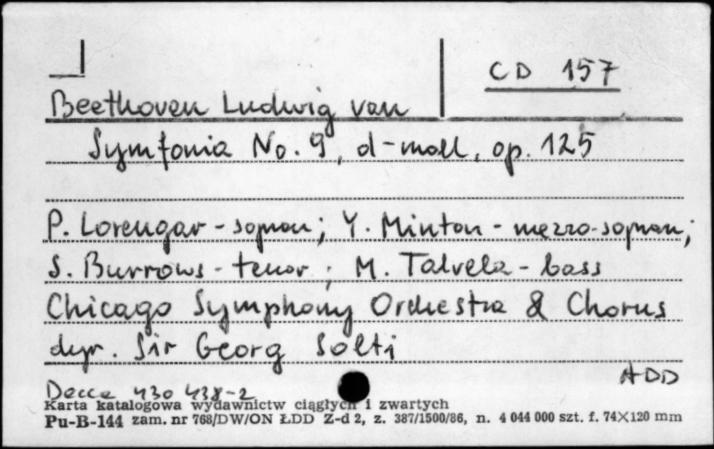 CD 157
Beethoven Ludwig van
Symfonia No. 9, d-moll, op. 125
P. Lorengar - sopran; Y. Minton - mezzo-sopran;
S. Burrows - tenor; M. Talvela - bass
Chicago Symphony Orchestra & Chorus
dyr. Sir Georg Solti
ADD
Decca 430 438-2
Karta katalogowa wydawnictw ciągłych i zwartych
Pu-B-144 zam. nr 768/DW/ON ŁDD Z-d 2, z. 387/1500/86, n. 4 044 000 szt. f. 74×120 mm